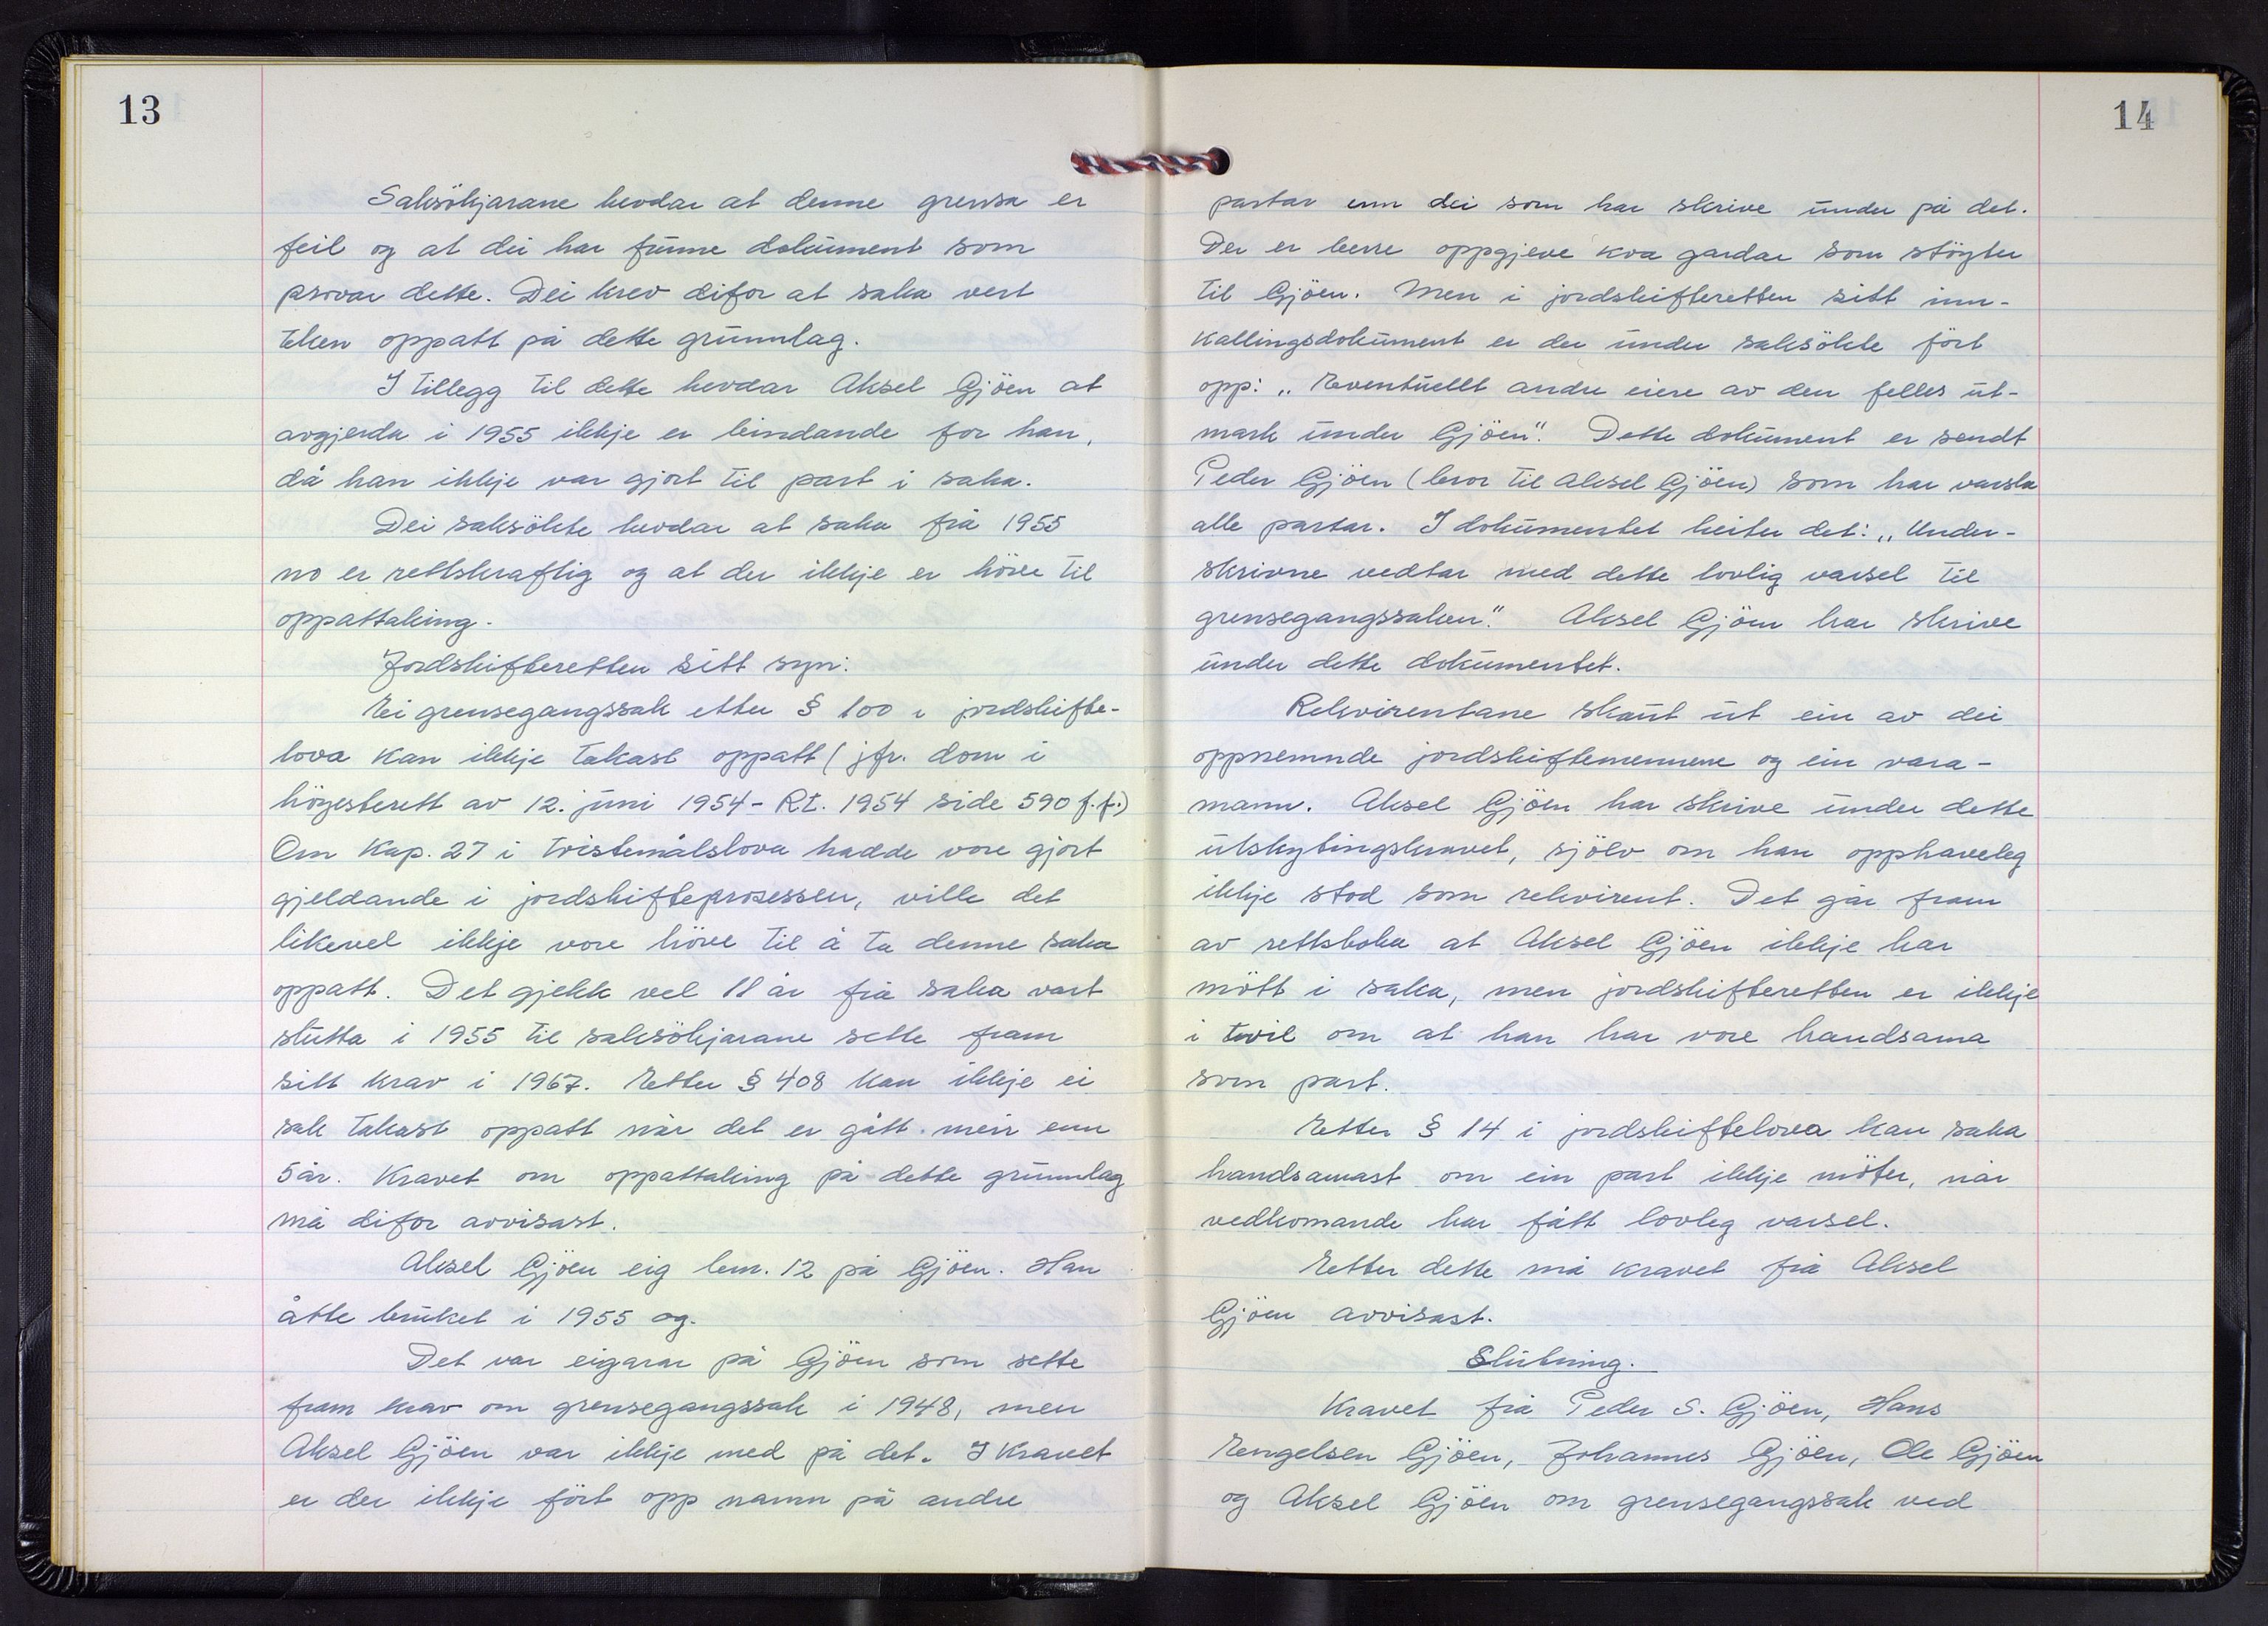 13
Saksökjarane hevdar at denne grensa er
feil og at dei har funne dokument som
provar dette. Dei krev difor at saka vert
teken oppatt på dette grunnlag.
I tillegg til dette hevdar Aksel Gjöen at
avgjerda i 1955 ikkje er bindande for han,
då han ikkje var gjort til part i saka.
Dei saksökte hevdar at saka frå 1955
no er rettskraftig og at der ikkje er höve til
oppattaking.
Jordskifteretten sitt syn:
Ei grensegangssak etter § 100 i jordskifte-
lova kan ikkje takast oppatt (jfr. dom i
högesterett av 12. juni 1954 - Rt. 1954 side 590 f.f.)
Om kap. 27 i tvistemålslova hadde vore gjort
gjeldande i jordskifteprosessen, ville det
likevel ikkje vore höve til å ta denne saka
oppatt. Det gjekk vel 11 år frå saka vart
slutta i 1955 til saksökjarane sette fram
sitt krav i 1967. Etter § 408 kan ikkje ei
sak takast oppatt når det er gått meir enn
5 år. Kravet om oppattaking på dette grunnlag
må difor avvisast.
Aksel Gjöen eig bnr. 12 på Gjöen. Han
åtte bruket i 1955 og.
Det var eigarar på Gjöen som sette
fram krav om grensegangssak i 1948, men
Aksel Gjöen var ikkje med på det. I kravet
er der ikkje fört opp namn på andre
14
partar enn dei som har skrive under på det.
Der er berre oppgjeve kva gardar som stöyter
til Gjöen. Men i jordskifteretten sitt inn-
kallingsdokument er der under saksökte fört
opp: „Eventuellt andre eiere av den felles ut-
mark under Gjöen". Dette dokument er sendt
Peder Gjöen (bror til Aksel Gjöen) som har varsla
alle partar. I dokumentet heiter det: „Under-
skrivne vedtar med dette lovlig varsel til
grensegangssaken". Aksel Gjöen har skrive
under dette dokumentet.
Rekvirentane skaut ut ein av dei
oppnemnde jordskiftemennene og ein vara-
mann. Aksel Gjöen har skrive under dette
utskytingskravet, sjölv om han opphaveleg
ikkje stod som rekvirent. Det går fram
av rettsboka at Aksel Gjöen ikkje har
mött i saka, men jordskifteretten er ikkje
i tvil om at han har vore handsama
som part.
Etter § 14 i jordskiftelova kan saka
handsamast om ein part ikkje möter, når
vedkomande har fått lovleg varsel.
Etter dette må kravet frå Aksel
Gjöen avvisast.
Slutning.
Kravet frå Peder S. Gjöen, Hans
Engelsen Gjöen, Johannes Gjöen, Ole Gjöen
og Aksel Gjöen om grensegangssak ved